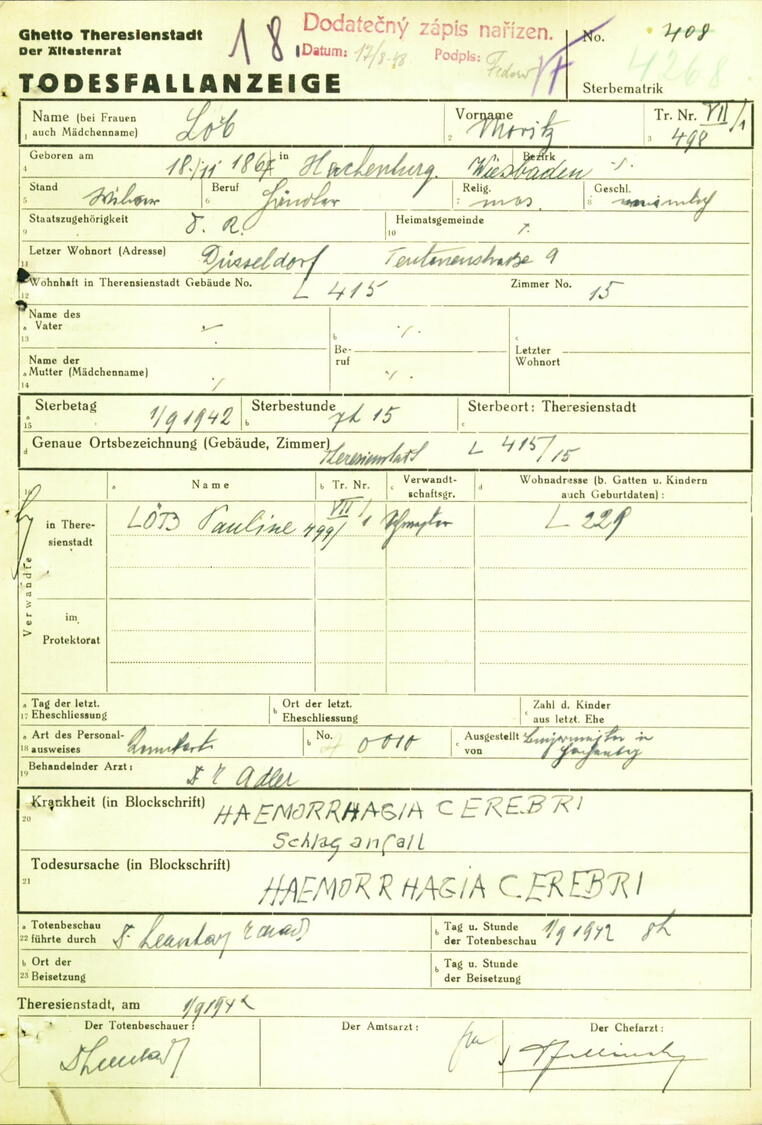 Ghetto Theresienstadt
Der Ältestenrat
TODESFALLANZEIGE
18.
Dodatečný zápis nařízen.
Datum: 17/8-48 Podpis:
No. 408
4268
Sterbematrik
Name (bei Frauen auch Mädchenname) Löb
Vorname Moritz
Tr. Nr. VII/1 498
Geboren am 18./11 1867 in Hachenburg. Bezirk Wiesbaden ·/.
Stand Witwer Beruf Händler Relig. mos. Geschl. männlich
Staatszugehörigkeit D. R. Heimatsgemeinde
Letzer Wohnort (Adresse) Düsseldorf Teutonenstraße 9
Wohnhaft in Theresienstadt Gebäude No. L 415 Zimmer No. 15
Name des Vater ·/. Beruf ·/. Letzter Wohnort
Name der Mutter (Mädchenname) ·/. ·/.
Sterbetag 1/9 1942 Sterbestunde 7h 15 Sterbeort: Theresienstadt
Genaue Ortsbezeichnung (Gebäude, Zimmer) Theresienstadt L 415/15
Verwandte
Name Tr. Nr. Verwandtschaftsgr. Wohnadresse (b. Gatten u. Kindern auch Geburtdaten):
in Theresienstadt LÖB Pauline VII/1 499 Schwester L 229
im Protektorat
Tag der letzt. Eheschliessung Ort der letzt. Eheschliessung Zahl d. Kinder aus letzt. Ehe
Art des Personalausweises Kennkarte No. A 0010 Ausgestellt von Bürgermeister in Hachenburg
Behandelnder Arzt: Dr Adler
Krankheit (in Blockschrift) HAEMORRHAGIA CEREBRI
Schlaganfall
Todesursache (in Blockschrift)
HAEMORRHAGIA CEREBRI
Totenbeschau führte durch Tag u. Stunde der Totenbeschau 1/9 1942 8h
Ort der Beisetzung Tag u. Stunde der Beisetzung
Theresienstadt, am 1/9 1942
Der Totenbeschauer: Der Amtsarzt: Der Chefarzt: